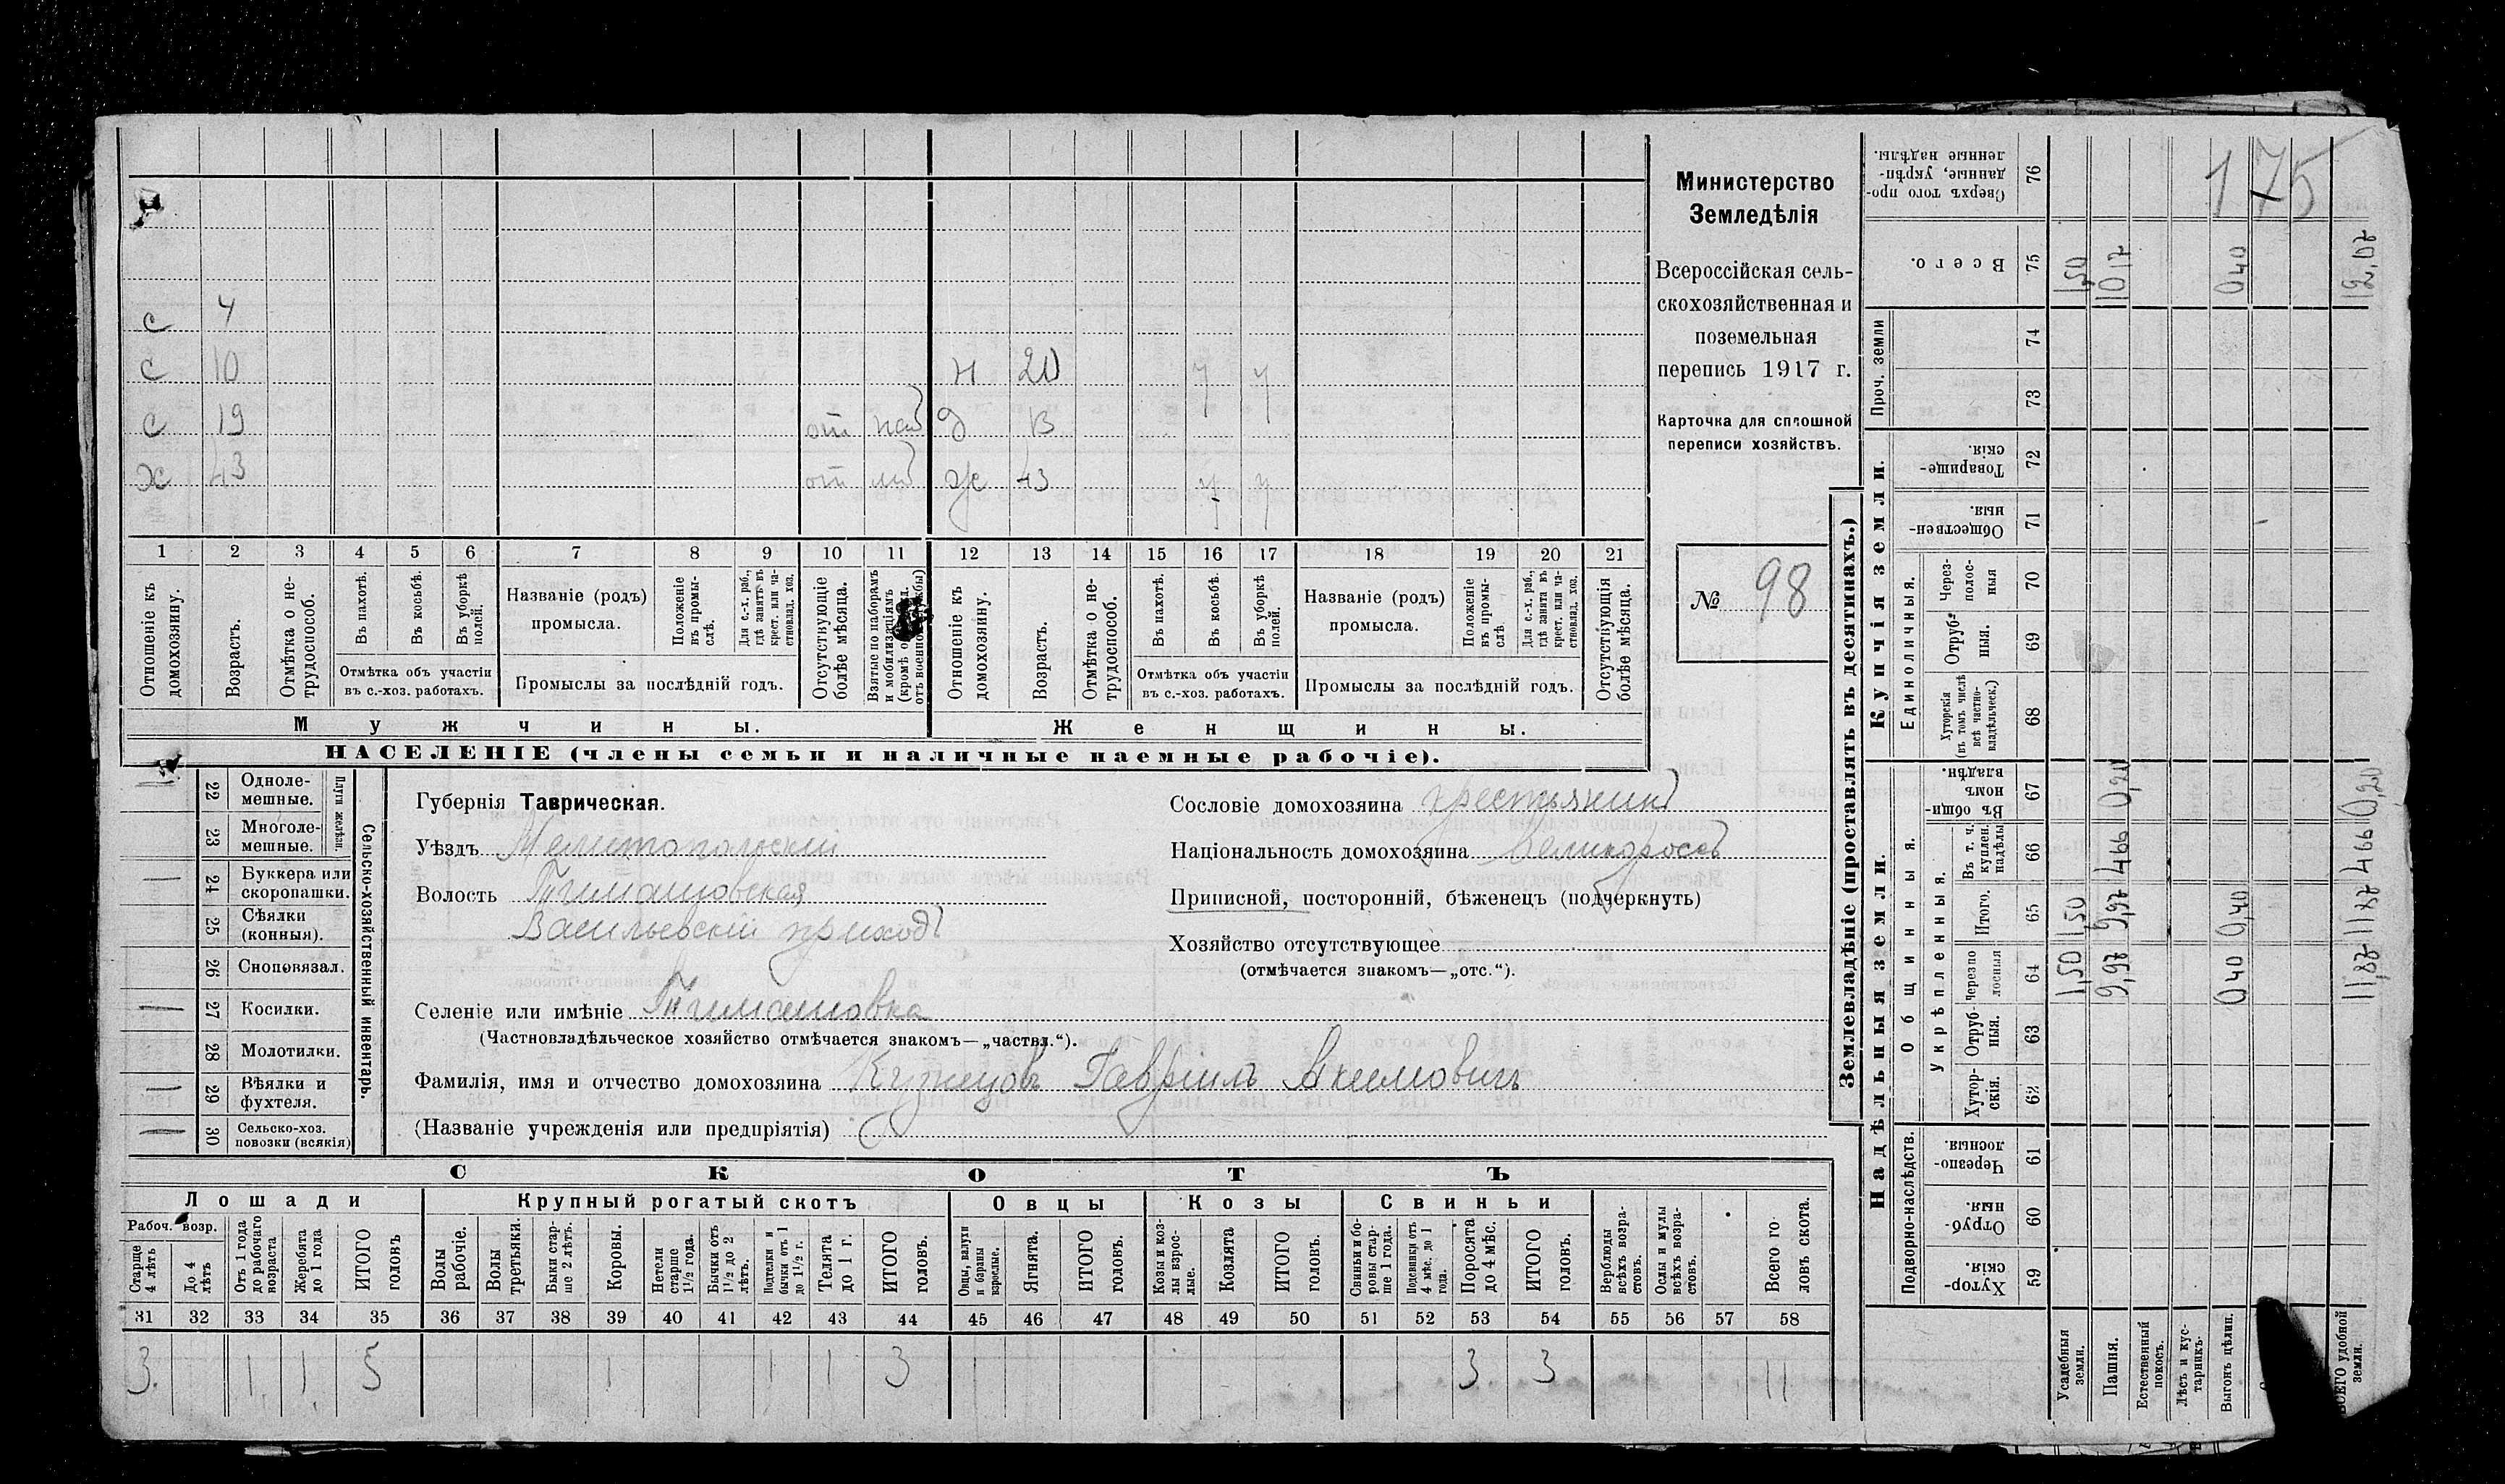 175
Министерство
Земледѣлія
Всероссійская сель-
скохозяйственная и
поземельная
перепись 1917 г.
Карточка для сплошной
переписи хозяйствъ.
№ 98
с 4
с 10 н 20 у у
с 19 от наб д 13
х 43 от ж 43 у у
1 2 3 4 5 6 7 8 9 10 11 12 13 14 15 16 17 18 19 20 21
Отношеніе къ домохозяину.
Возрастъ.
Отмѣтка о не-трудоспособ.
Въ пахотѣ.
Въ косьбѣ.
Въ уборкѣ полей.
Отмѣтка объ участіи
въ с.-хоз. работахъ.
Названіе (родъ)
промысла.
Положеніе въ промы-слѣ.
Для с.-х. раб., гдѣ занятъ въ крест. или ча-стновлад. хоз.
Промыслы за послѣдній годъ.
Отсутствующіе болѣе мѣсяца.
Взятые по наборамъ и мобилизаціямъ
Отношеніе къ домохозяину.
Возрастъ.
Отмѣтка о не-трудоспособ.
Въ пахотѣ.
Въ косьбѣ.
Въ уборкѣ полей.
Отмѣтка объ участіи
въ с.-хоз. работахъ.
Названіе (родъ)
промысла.
Положеніе въ промы-слѣ
Для с.-х. раб., гдѣ занята въ крест. или ча-стновлад. хоз.
Промыслы за послѣдній годъ.
Отсутствующія болѣе мѣсяца.
Мужчины.
Женщины.
НАСЕЛЕНІЕ (члены семьи и наличные наемные рабочіе).
Сельско-хозяйственный инвентарь.
Плуги желѣзн.
22 Однолe-
мешные.
23 Многоле-
мешные.
24 Буккера или
скоропашки.
25 Сѣялки
(конныя).
26 Сноповязал.
27 Косилки.
28 Молотилки.
29 Вѣялки и
фухтеля.
30 Сельско-хоз.
повозки (всякія)
Губернія Таврическая.
Уѣздъ Мелитопольскій
Волость Тимашовская
Васильевскій приходъ
Селеніе или имѣніе Тимашовка
(Частновладѣльческое хозяйство отмѣчается знакомъ—„частвл.“).
Фамилія, имя и отчество домохозяина Кузнецовъ Гавріилъ Акимовичъ
(Названіе учрежденія или предпріятія)
Сословіе домохозяина крестьянинъ
Національность домохозяина великороссъ
Приписной, посторонній, бѣженецъ (подчеркнуть)
Хозяйство отсутствующее
(отмѣчается знакомъ—„отс.“).
СКОТЪ
Лошади
Крупный рогатый скотъ
Овцы
Козы
Свиньи
Рабоч. возр.
Старше 4 лѣтъ
До 4 лѣтъ
Отъ 1 года до рабочаго возраста
Жеребята до 1 года
ИТОГО головъ
Волы рабочіе.
Волы третьяки.
Быки стар-ше 2 лѣтъ.
Коровы.
Нетели старше 1½ года.
Бычки отъ 1½ до 2 лѣтъ.
Подтелки и бычки отъ 1 до 1½ г.
Телята до 1 г.
ИТОГО головъ.
Овцы, валухи и бараны взрослые.
Ягнята.
ИТОГО головъ.
Козы и коз-лы взрос-лые.
Козлята
ИТОГО головъ.
Свиньи и бо-ровы стар-ше 1 года.
Подсвинки отъ 4 мѣс. до 1 года.
Поросята до 4 мѣс.
ИТОГО головъ.
Верблюды всѣхъ возра-стовъ.
Ослы и мулы всѣхъ возра-стовъ.
Всего го-ловъ скота.
31 32 33 34 35 36 37 38 39 40 41 42 43 44 45 46 47 48 49 50 51 52 53 54 55 56 57 58
3 1 1 5 1 1 1 3 3 3 11
Землевладѣніе (проставлять въ десятинахъ.)
Купчія земли.
Надѣльныя земли.
Сверхъ того про-данные, укрѣп-ленные надѣлы. 76
Всего. 75
Проч. земли 74 73
Товарище-скія. 72
Обществен-ныя. 71
Единоличныя.
Через-полос-ныя 70
Отруб-ныя. 69
Хуторскія (въ томъ числѣ всѣ частно-владѣльческ.) 68
Общинныя.
Въ общин-номъ владѣн. 67
Укрѣпленныя.
Въ т. ч. куплен. надѣлы 66
Итого. 65
Черезпо лосныя 64
Отруб-ныя. 63
Хутор-скія. 62
Подворно-наслѣдств.
Черезпо-лосныя. 61
Отруб-ныя. 60
Хутор-скія. 59
Усадебныя земли. 1,50 1,50 1,50
Пашня. 9,97 9,97 4,66 0,20 10,17
Естественный покосъ.
Лѣсъ и кус-тарникъ.
Выгонъ цѣлин. 0,40 0,40 0,40
ВСЕГО удобной земли. 11,87 11,87 4,66 0,20 12,07